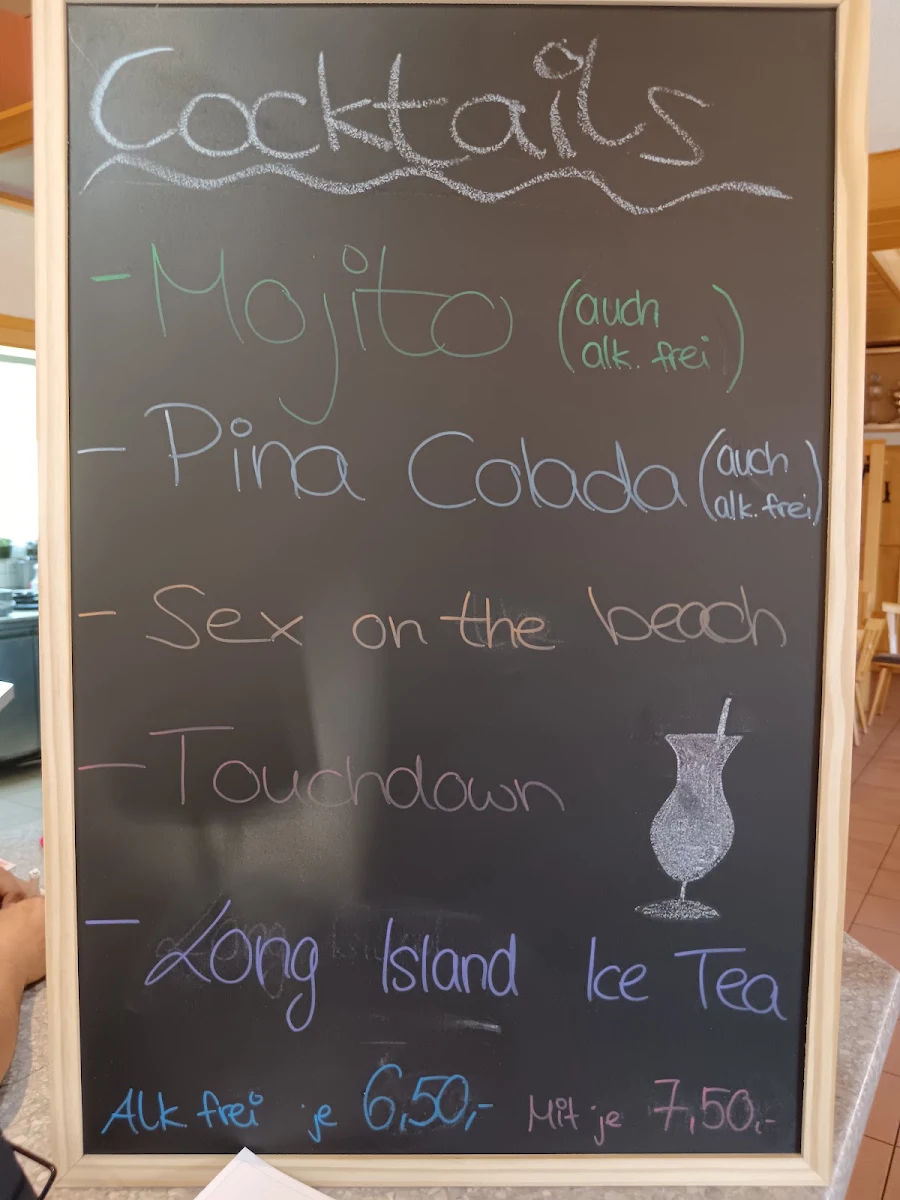 Cocktails
- Mojito (auch
alk. frei)
- Pina Colada (auch
alk. frei)
- Sex on the beach
- Touchdown
- Long Island Ice Tea
Alk frei je 6,50,- Mit je 7,50,-